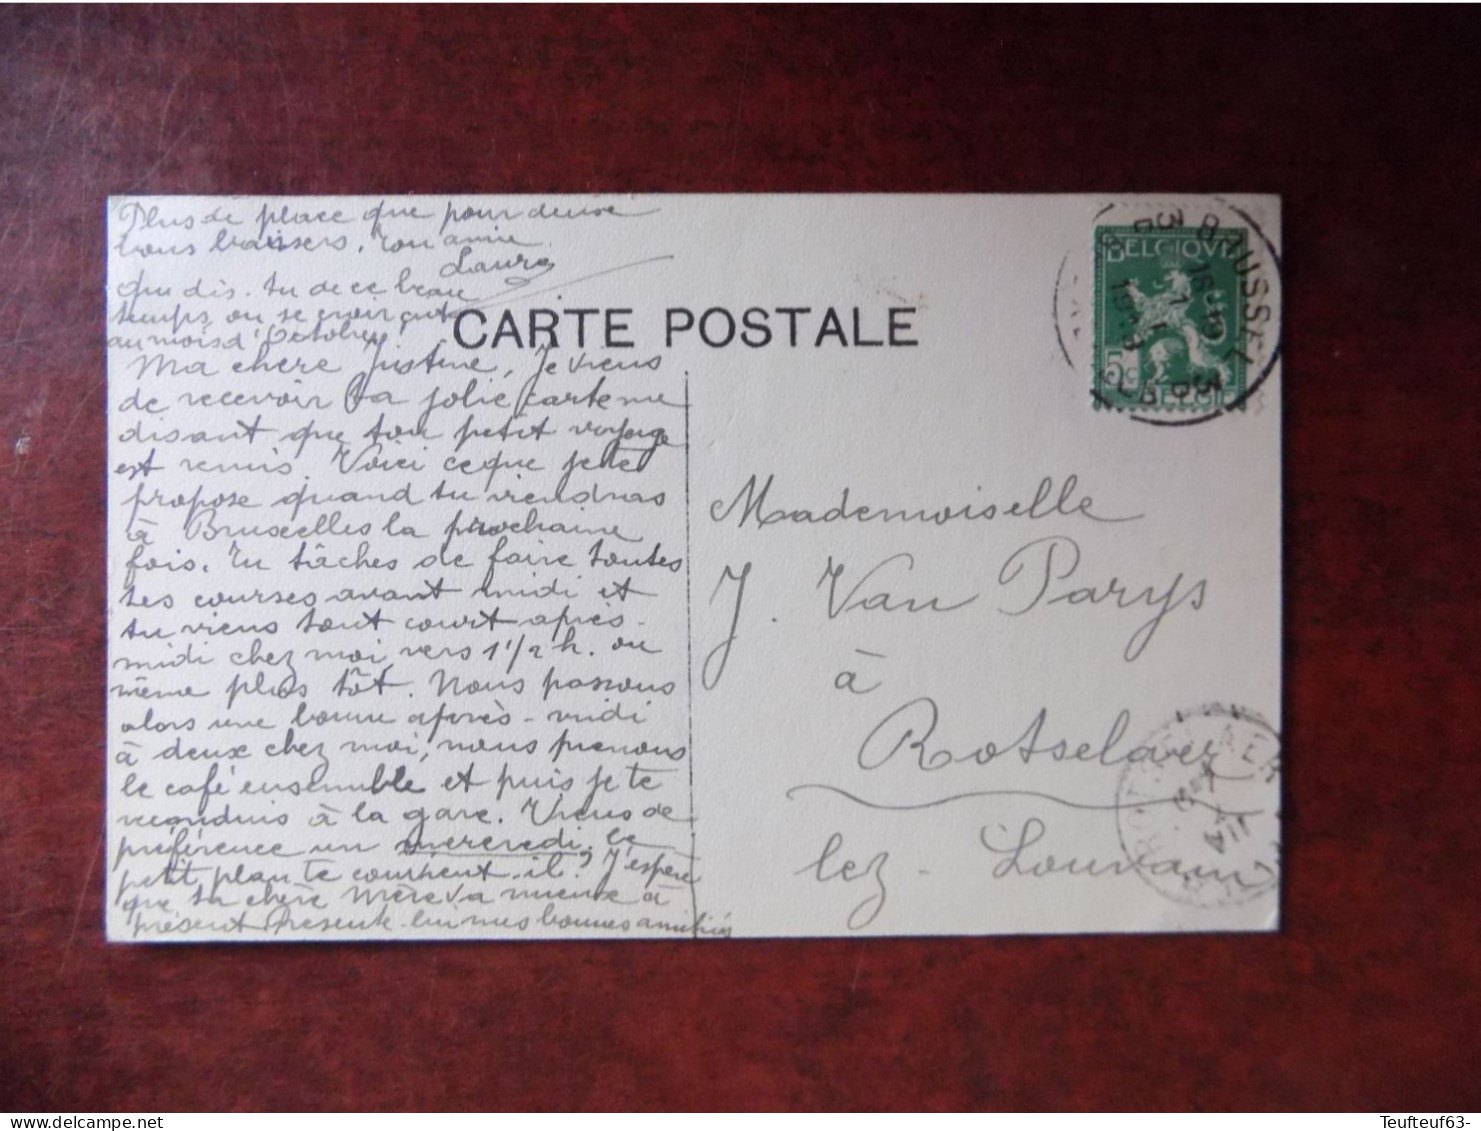 Plus de place que pour deux
bons baisers. Ton amie
Laure
Que dis-tu de ce beau
temps, on se croirait
au mois d'Octobre
CARTE POSTALE
Ma chère Justine, Je viens
de recevoir ta jolie carte me
disant que ton petit voyage
est remis. Voici ce que je te
propose quand tu viendras
à Bruxelles la prochaine
fois. Tu tâches de faire toutes
tes courses avant midi et
tu viens tout court après-
midi chez moi vers 1 1/2 h. ou
même plus tôt. Nous passons
alors une bonne après-midi
à deux chez moi, nous prenons
le café ensemble et puis je te
reconduis à la gare. Viens de
préférence un mercredi. Ce
petit plan te convient-il? J'espère
que ta chère Mère va mieux à
présent Présente-lui mes bonnes amitiés
BELGIQUE
5
BELGIE
BRUSSEL
Mademoiselle
J. Van Parys
à
Rotselaer
lez-Louvain
Teufteuf63-